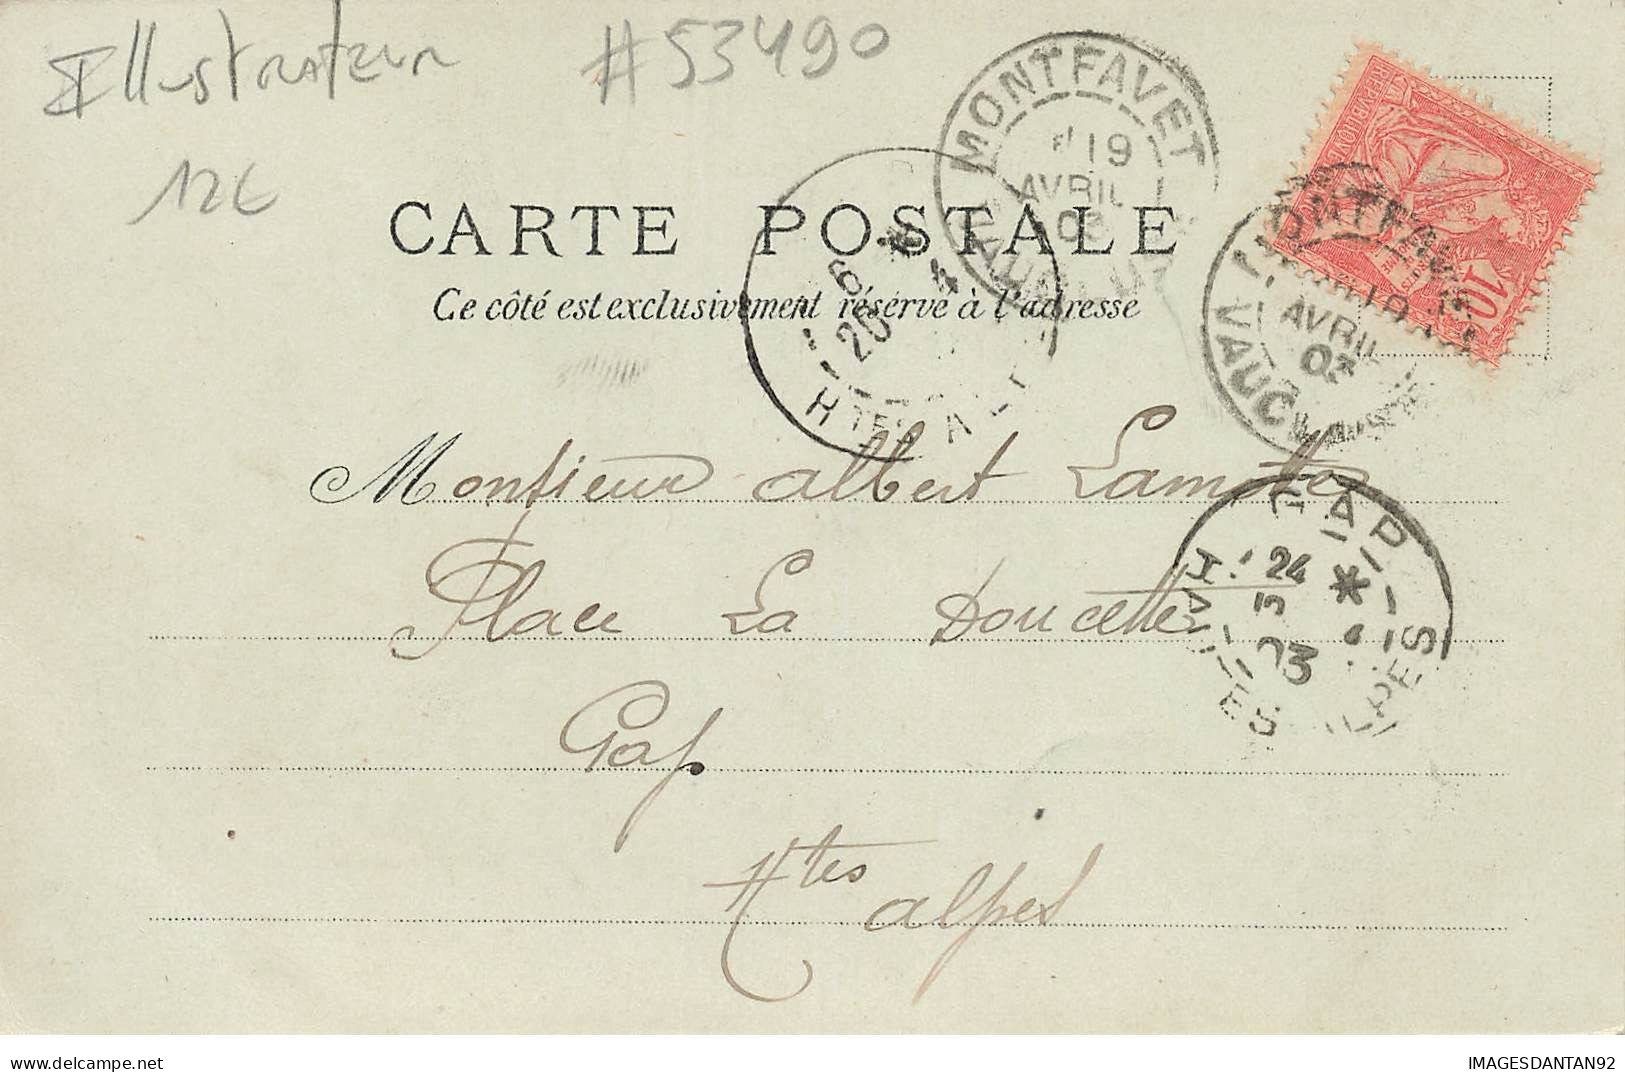 Illustrateur #53490
12€
MONTFAVET
19
AVRIL
03
10
MONTFAVET
19
AVRIL
03
VAUCLUSE
CARTE POSTALE
Ce côté est exclusivement réservé à l'adresse
6
20 4
HTES ALPES
Monsieur Albert
Place La Doucette
Gap
Htes Alpes
GAP
24
5
03
HAUTES ALPES
delcampe.net
IMAGESDANTAN92